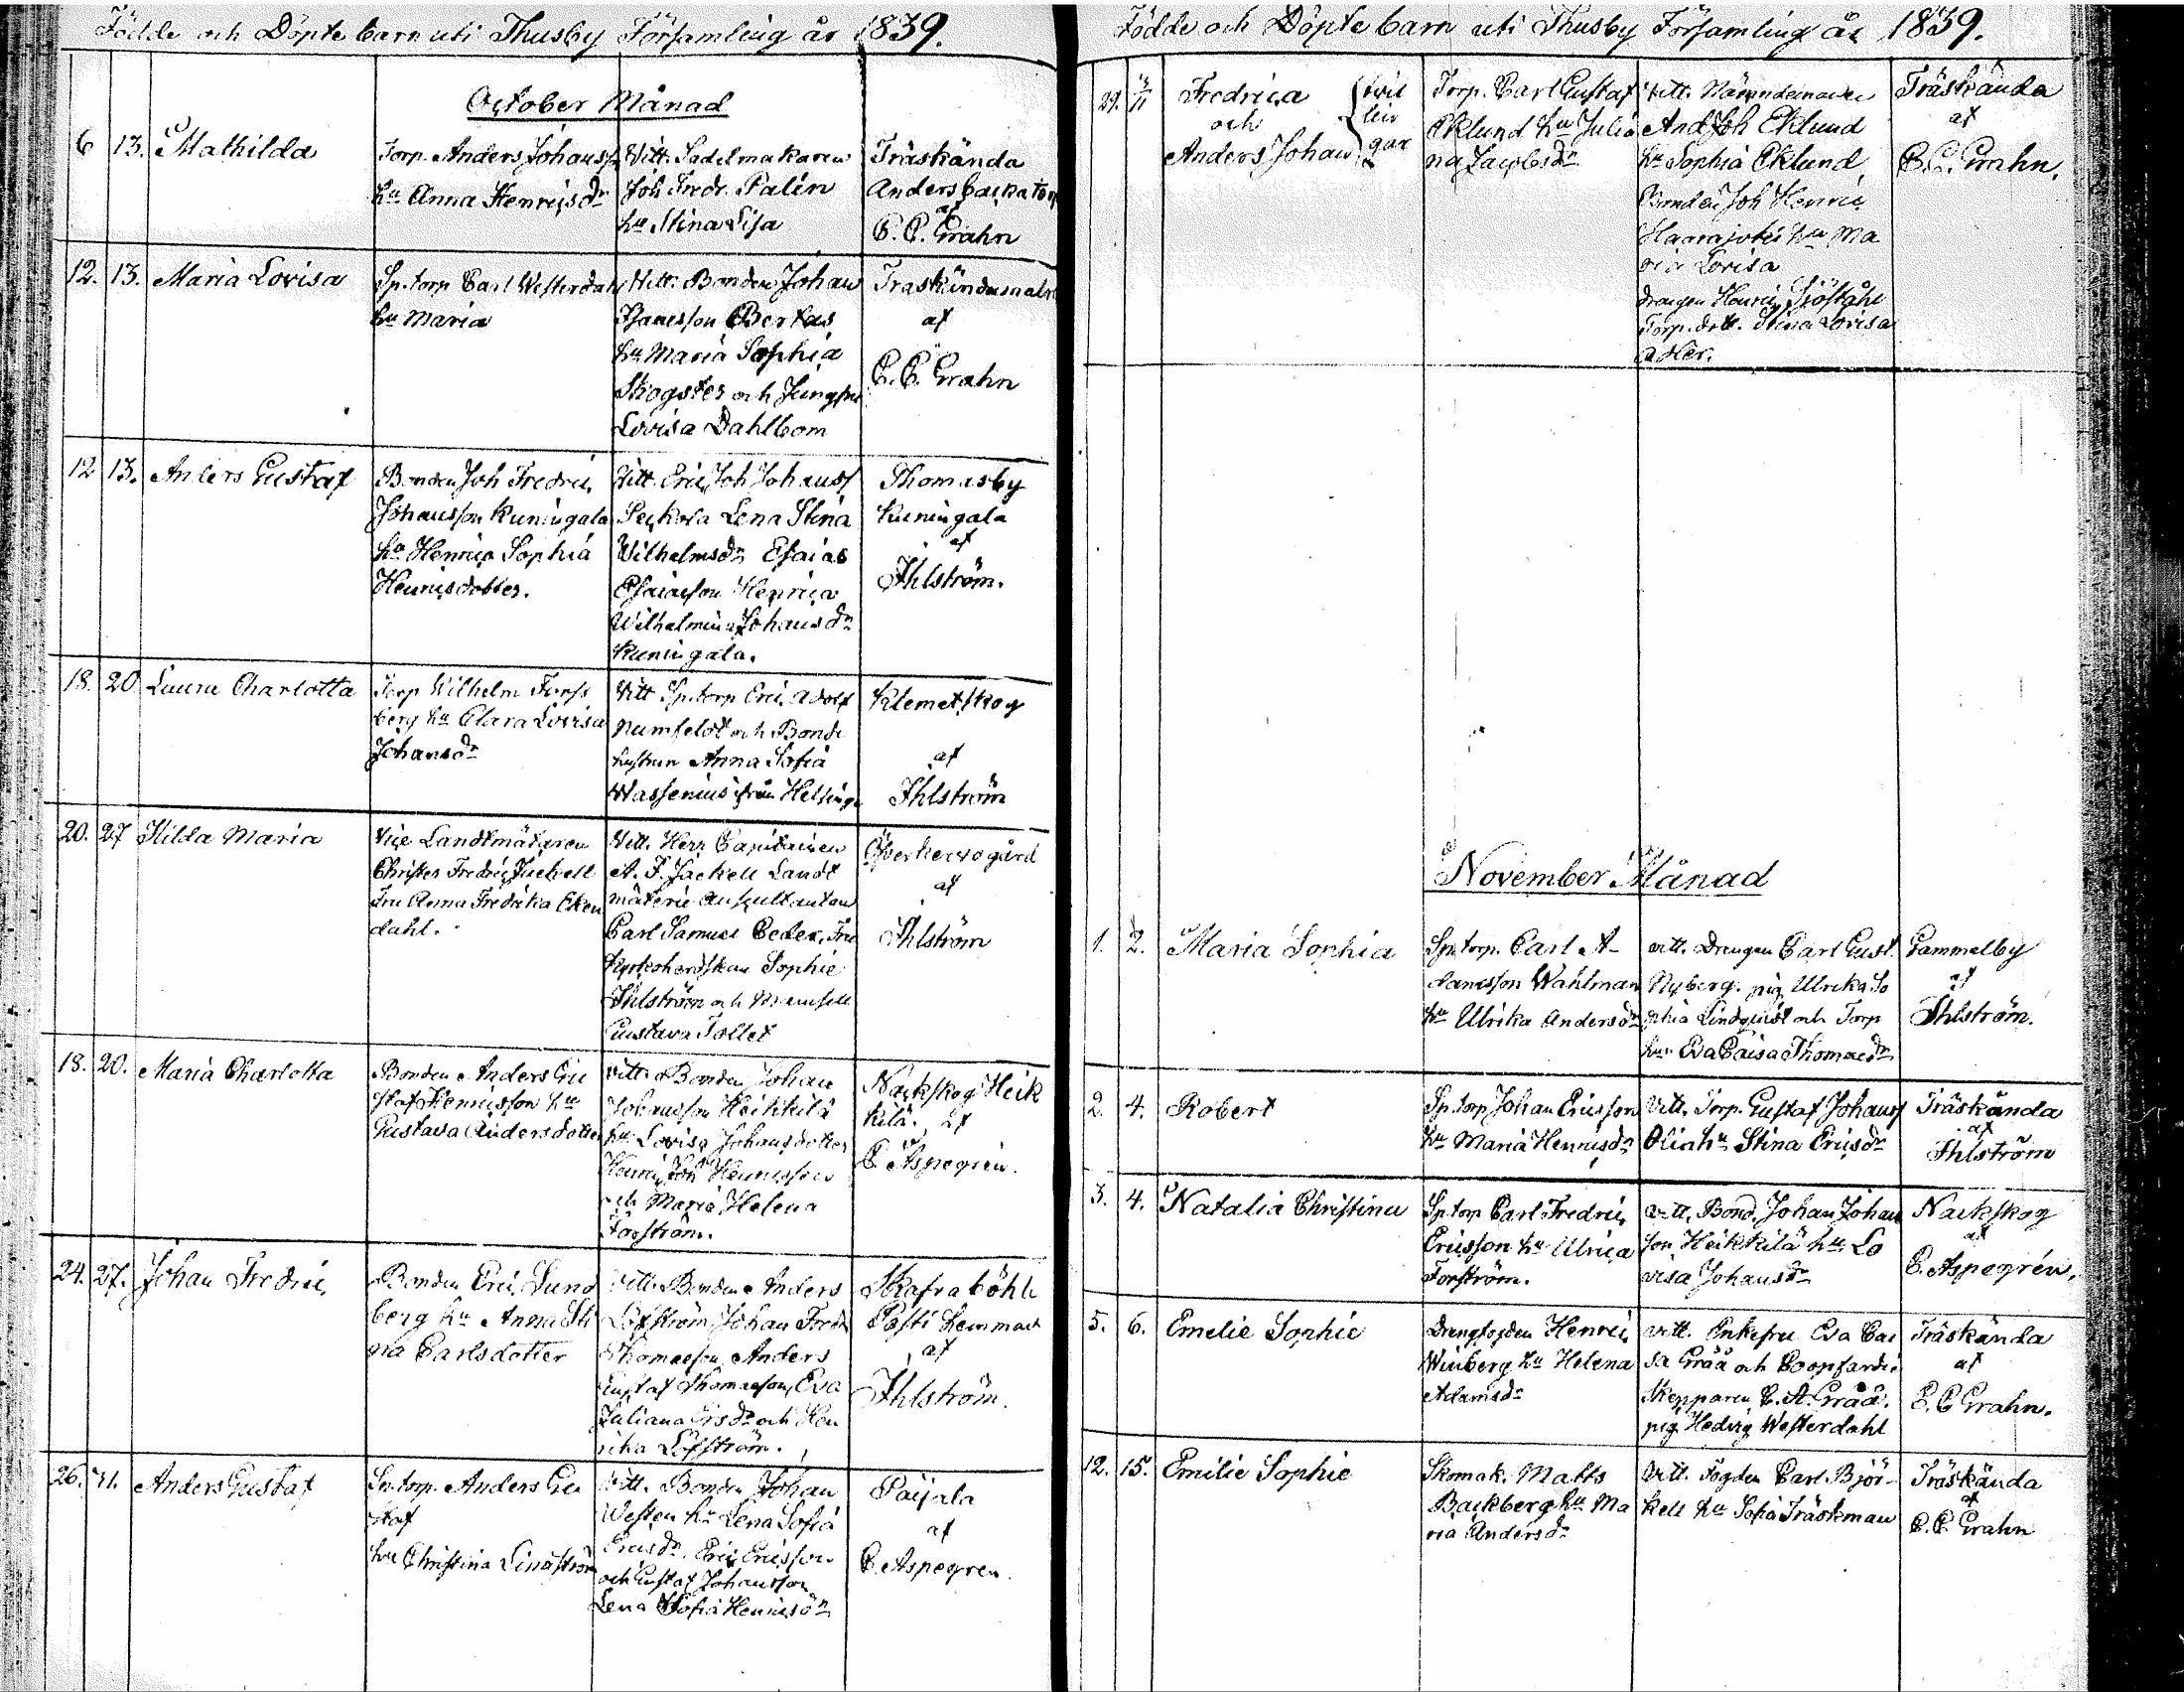 Födde och Döpte barn uti Thusby Församling år 1839.
October Månad
6 13. Mathilda
Torp. Anders Johansson
hu Anna Henricsdr
Vitt. Sadelmakaren
Joh Fredr. Palin
hu Stina Lisa
Träskända
Andersbacka torp
af
C. C. Grahn
12. 13. Maria Lovisa
Sp.torp Carl Westerdahl
hu Maria
Vitt. Bonden Johan
Bertas
hu Maria Sophia
Skogster och Jungfru
Lovisa Dahlbom
Träskändamalm
af
C. C. Grahn
12 13. Anders Gustaf
Bonden Joh Fredric
Johansson Kuningala
hu Henrica Sophia
Henricsdotter.
Vitt. Eric Joh Johanss
Peckola Lena Stina
Wilhelmsdr Esaias
Esaiasson Henrica
Wilhelmina Johansdr
Kuningala.
Thomasby
Kuningala
af
Ihlström.
18. 20 Laura Charlotta
Torp Wilhelm Forss
berg hu Clara Lovisa
Johansdr
Vitt Sp.torp Eric Adolf
Numfeldt och Bonde
hustrun Anna Sofia
Wassenius från Helsinge
Klemetskog
af
Ihlström
20. 27 Hilda Maria
Vice Landtmätaren
Christer Fredric Jäckell
Fru Anna Fredrika Eken
dahl.
Vitt. Herr Capitainen
A. F. Jäckell Landt
mäteri auscultanten
Carl Samuel Ceder, Fru
Kyrkoherdskan Sophie
Ihlström och Mamsell
Gustava Tollet
Öfverkervo gård
af
Ihlström
18. 20. Maria Charlotta
Bonden Anders Gu
staf Henricsson hu
Gustava Andersdotter
Vitt. Bonden Johan
Johansson Heikkilä
hu Lovisa Johansdotter
Henric Joh Henricsson
och Maria Helena
Forström.
Nackskog Heik
kilä. af
C. Aspegrén.
24. 27. Johan Fredric
Bonden Eric Lund
berg hu Anna Sti
na Carlsdotter
Vitt. Bonden Anders
Löfström Johan Fredr
Thomasson, Anders
Gustaf Thomasson, Eva
Juliana Ersdr och Hen
rika Löfström.
Skafraböhle
Påsti hemman
af
Ihlström.
26. 31. Anders Gustaf
Sp.torp. Anders Gu
staf
hu Christina Lindström
Vitt. Bonden Johan
Westen hu Lena Sofia
Ericsdr. Eric Ericsson
och Gustaf Johansson
Lena Sofia Henricsdr
Paijala
af
C Aspegren.
Födde och Döpte barn uti Thusby Församling år 1839.
29. 3/11 Fredrica
och
Anders Johan
tvil
lin
gar
Torp. Carl Gustaf
Eklund hu Julia
na Jacobsdr
Vitt. Nämndemannen
And Joh Eklund
hu Sophia Eklund,
Bonden Joh Henric
Haarajoki hu Ma
ria Lovisa
drengen Henric Sjöståhl
Torp.dott. Stina Lovisa
Träskända
af
C. C. Grahn.
November Månad
1. 2. Maria Sophia
Sp.torp. Carl A-
damsson Wahlman
hu Ulrika Andersdr
vitt. Drengen Carl Gust.
Nyberg. pig. Ulrika So
phia Lindqvist och Torp
hun Eva Caisa Thomasdr
Gammelby
af
Ihlström.
2. 4. Robert
Sp.torp Johan Ericsson
hu Maria Henricsdr
Vitt. Torp. Gustaf Johanss
hu Stina Ericsdr
Träskända
af
Ihlström
3. 4. Natalia Christina
Sp.torp Carl Fredric
Ericsson hu Ulrica
Forström.
Vitt. Bond. Johan Johans
son Heikkilä hu Lo
visa Johansdr
Nackskog
af
C. Aspegrén.
5. 6. Emelie Sophie
Drengfogden Henric
Winberg hu Helena
Adamsdr
Vitt. Enkefru Eva Cai
sa Gråå och Coopfardie
Skepparen C. A. Gråå.
pig. Hedvig Westerdahl
Träskända
af
C. C Grahn.
12. 15. Emilie Sophie
Skomak. Matts
Backberg hu Ma
ria Andersdr
Vitt. Fogden Carl Björ-
kell hu Sofia Träskman
Träskända
af
C. C. Grahn